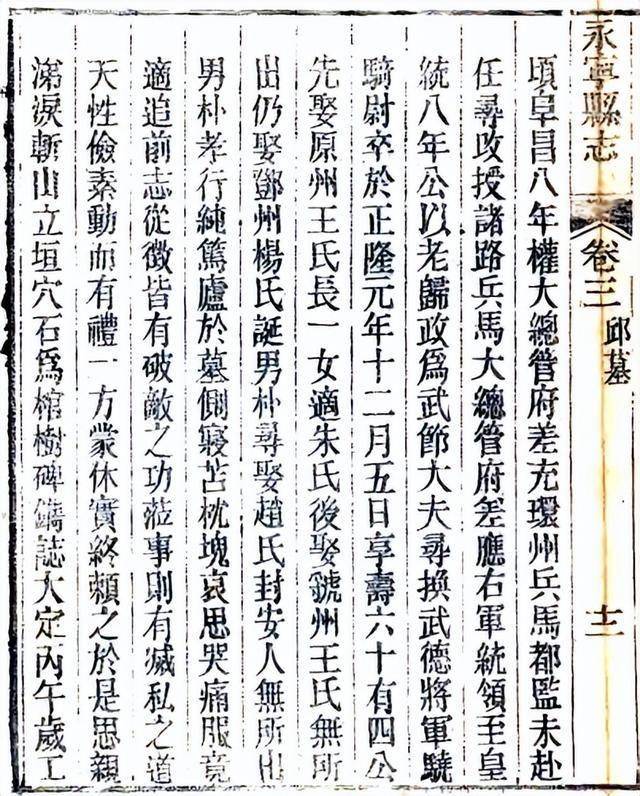 永寧縣志
卷三
邱墓
十二
頃阜昌八年權大總管府差充環州兵馬都監未赴
任尋改授諸路兵馬大總管府差應右軍統領至皇
統八年公以老歸政爲武節大夫尋換武德將軍驍
騎尉卒於正隆元年十二月五日享壽六十有四公
先娶原州王氏長一女適朱氏後娶虢州王氏無所
出仍娶鄧州楊氏誕男朴尋娶趙氏封安人無所出
男朴孝行純篤廬於墓側寢苫枕塊哀思哭痛服竟
適追前志從徵皆有破敵之功蒞事則有滅私之道
天性儉素動而有禮一方蒙休實終賴之於是思親
涕淚斬山立垣穴石爲棺樹碑鐫誌大定丙午歲工